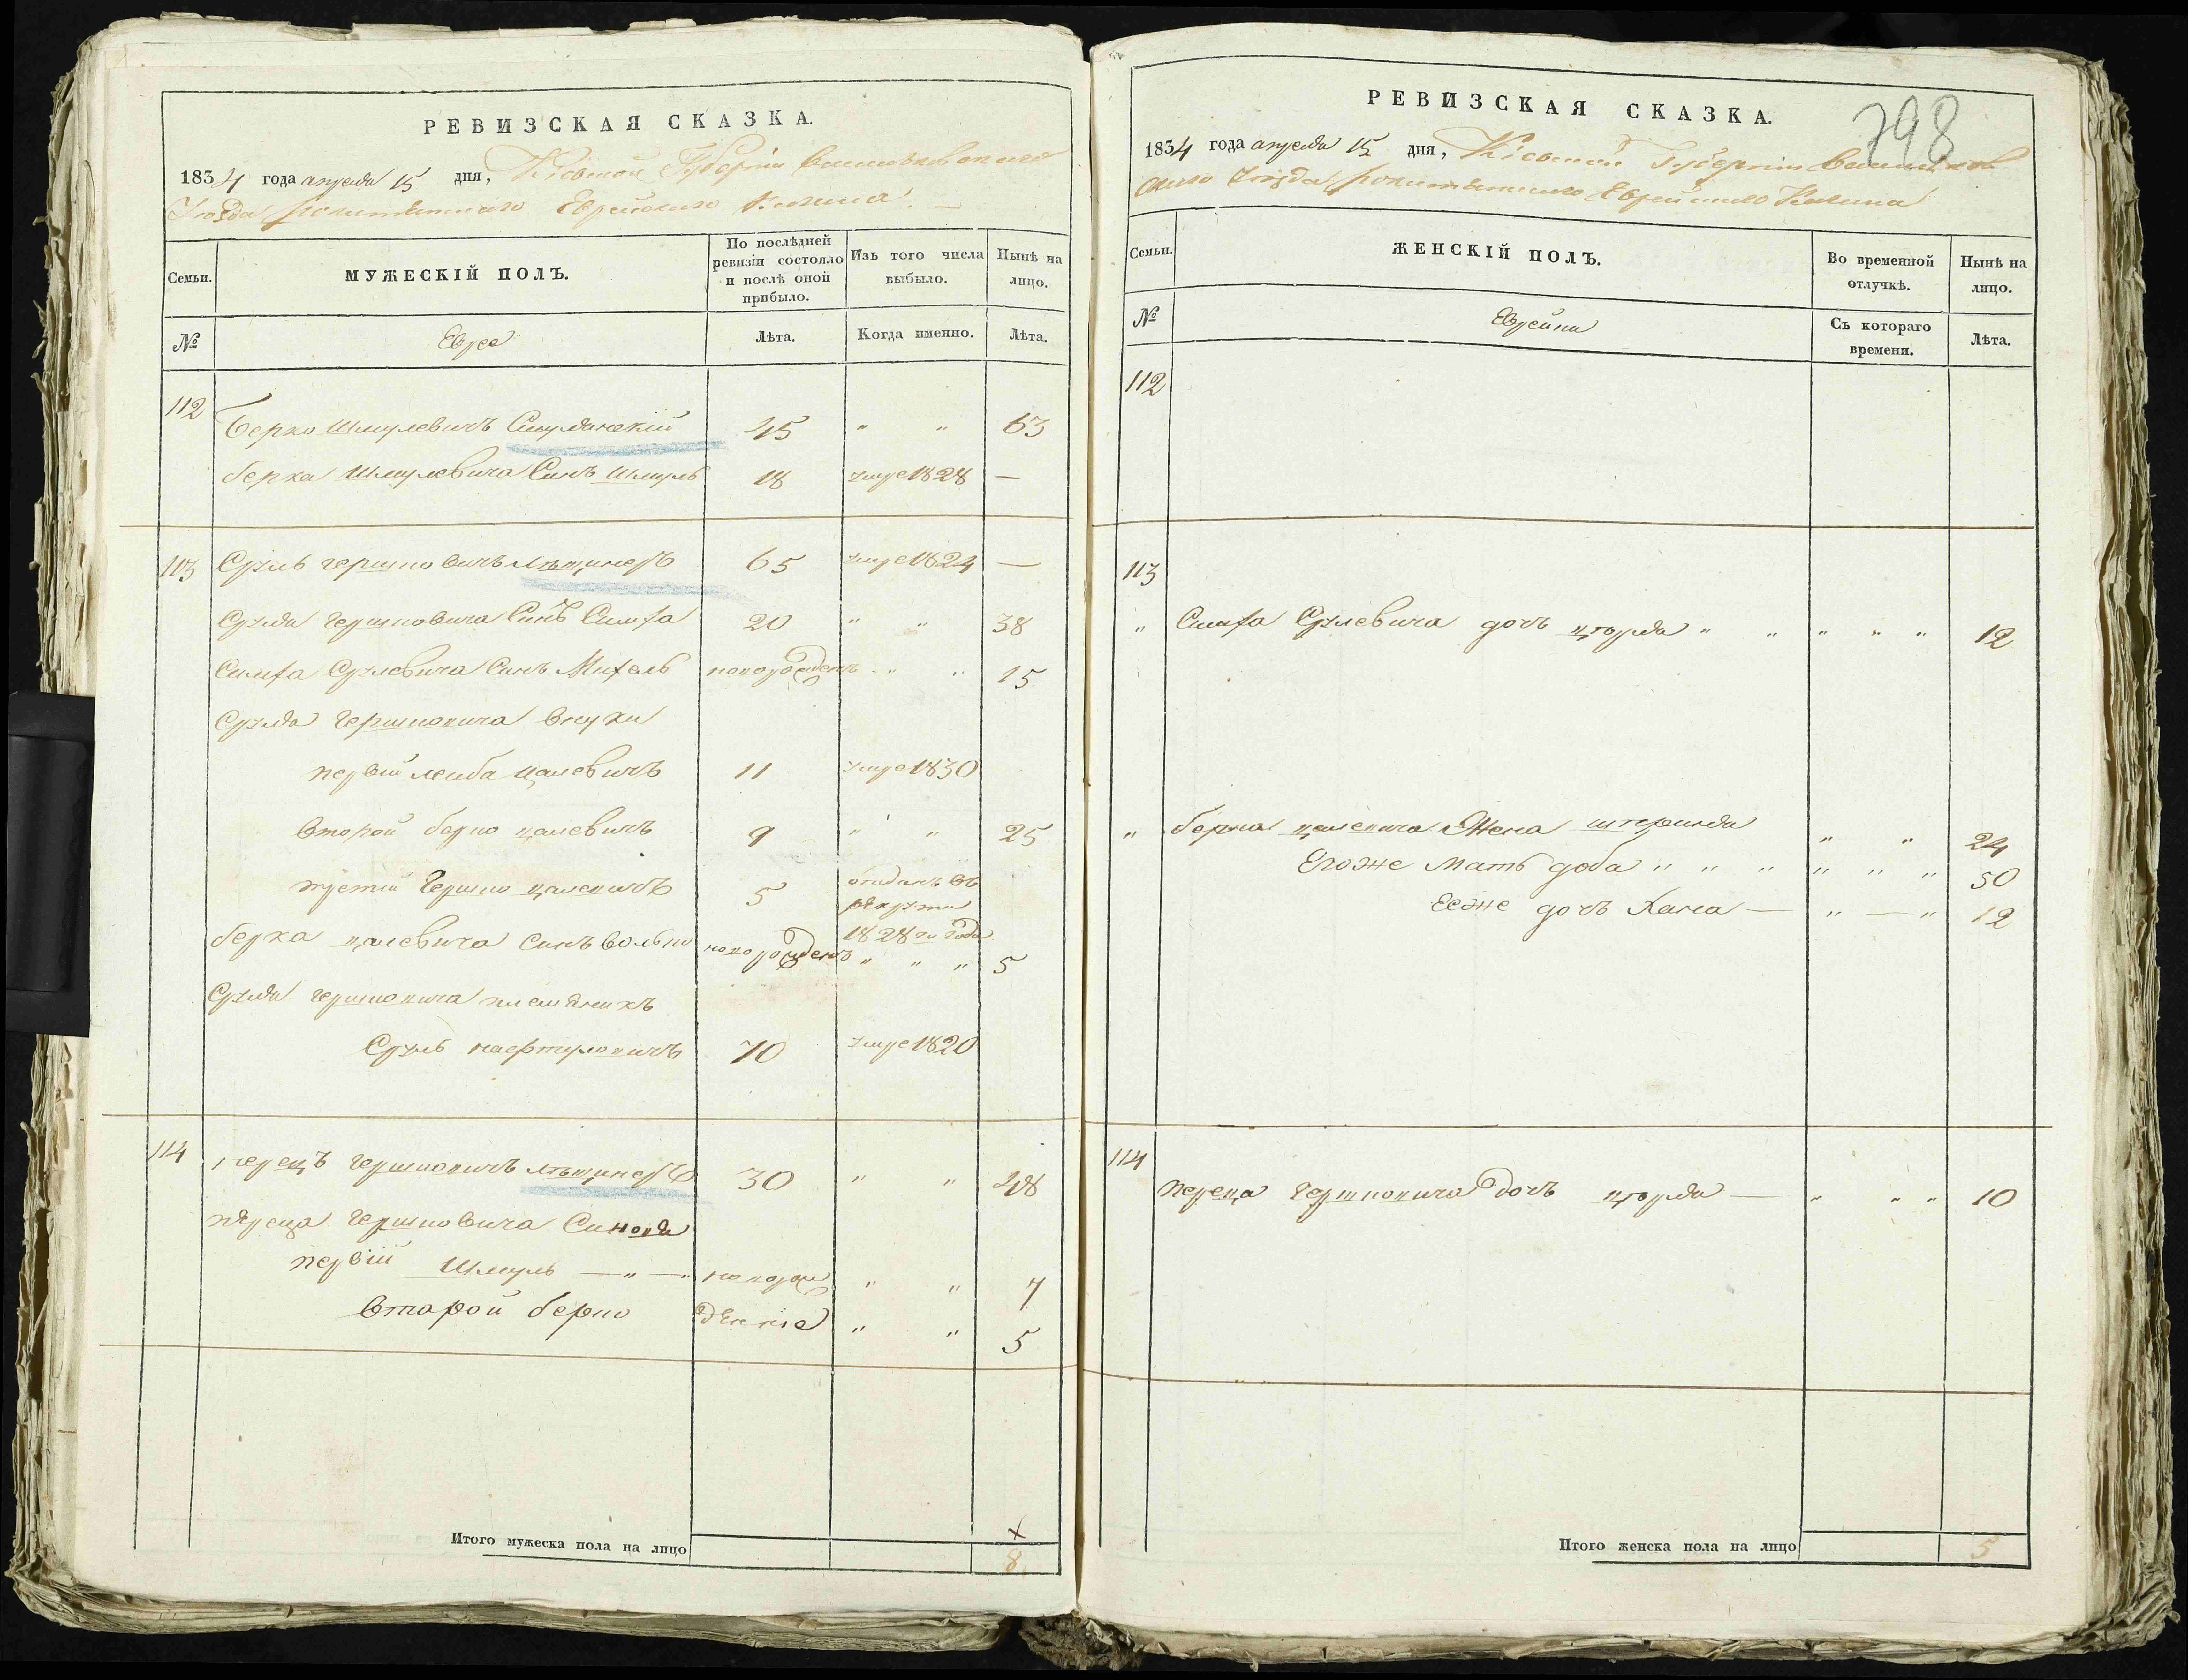 РЕВИЗСКАЯ СКАЗКА.
1834 года апреля 15 дня, Кіевской Губерніи Васильковскаго
Уезда Еврейского Кагала.
Семьи.
МУЖЕСКІЙ ПОЛЪ.
По послѣдней ревизіи состояло и послѣ оной прибыло.
Изъ того числа выбыло.
Нынѣ на лицо.
№
Евреи
Лѣта.
Когда именно.
Лѣта.
112
Берко Шмулевичъ 45 " " 63
Берка Шмулевича Синъ Шмуль 18 умре 1828 —
113 Сруль Гершковичъ 65 умре 1824 —
Сруля Гершковича Синъ Симха 20 " " 38
Симха Срулевича Синъ Михель новорожденъ " " 15
Сруля Гершковича внуки
первій Лейба Цалевичъ 11 умре 1830
Второй берко цалевичъ 9 " " 25
третій Гершко цалевичъ 5 отданъ въ рекруты 1828го года
берка цалевича Синъ Волько новорожденъ " " " 5
Сруля Гершковича племѣникъ
Сруль 70 умре 1820
114 Перецъ Гершковичъ 30 " " 48
переца Гершковича Синовя
первій Шмуль — " — " новорож " " 7
Второй берко деніе " " 5
Итого мужеска пола на лицо
8
798
РЕВИЗСКАЯ СКАЗКА.
1834 года апреля 15 дня, Кіевской Губерніи Васильков
скаго Уезда Еврейского Кагала
Семьи.
ЖЕНСКІЙ ПОЛЪ.
Во временной отлучкѣ.
Нынѣ на лицо.
№
Еврейки
Съ котораго времени.
Лѣта.
112
113
" Симха Срулевича дочъ " " " " " 12
" берка цалевича Жена " " 24
Егоже Мать доба " " " " " " 50
Еѥже дочъ Хана — " — " 12
114
переца Гершковича дочъ — " " " 10
Итого женска пола на лицо
5